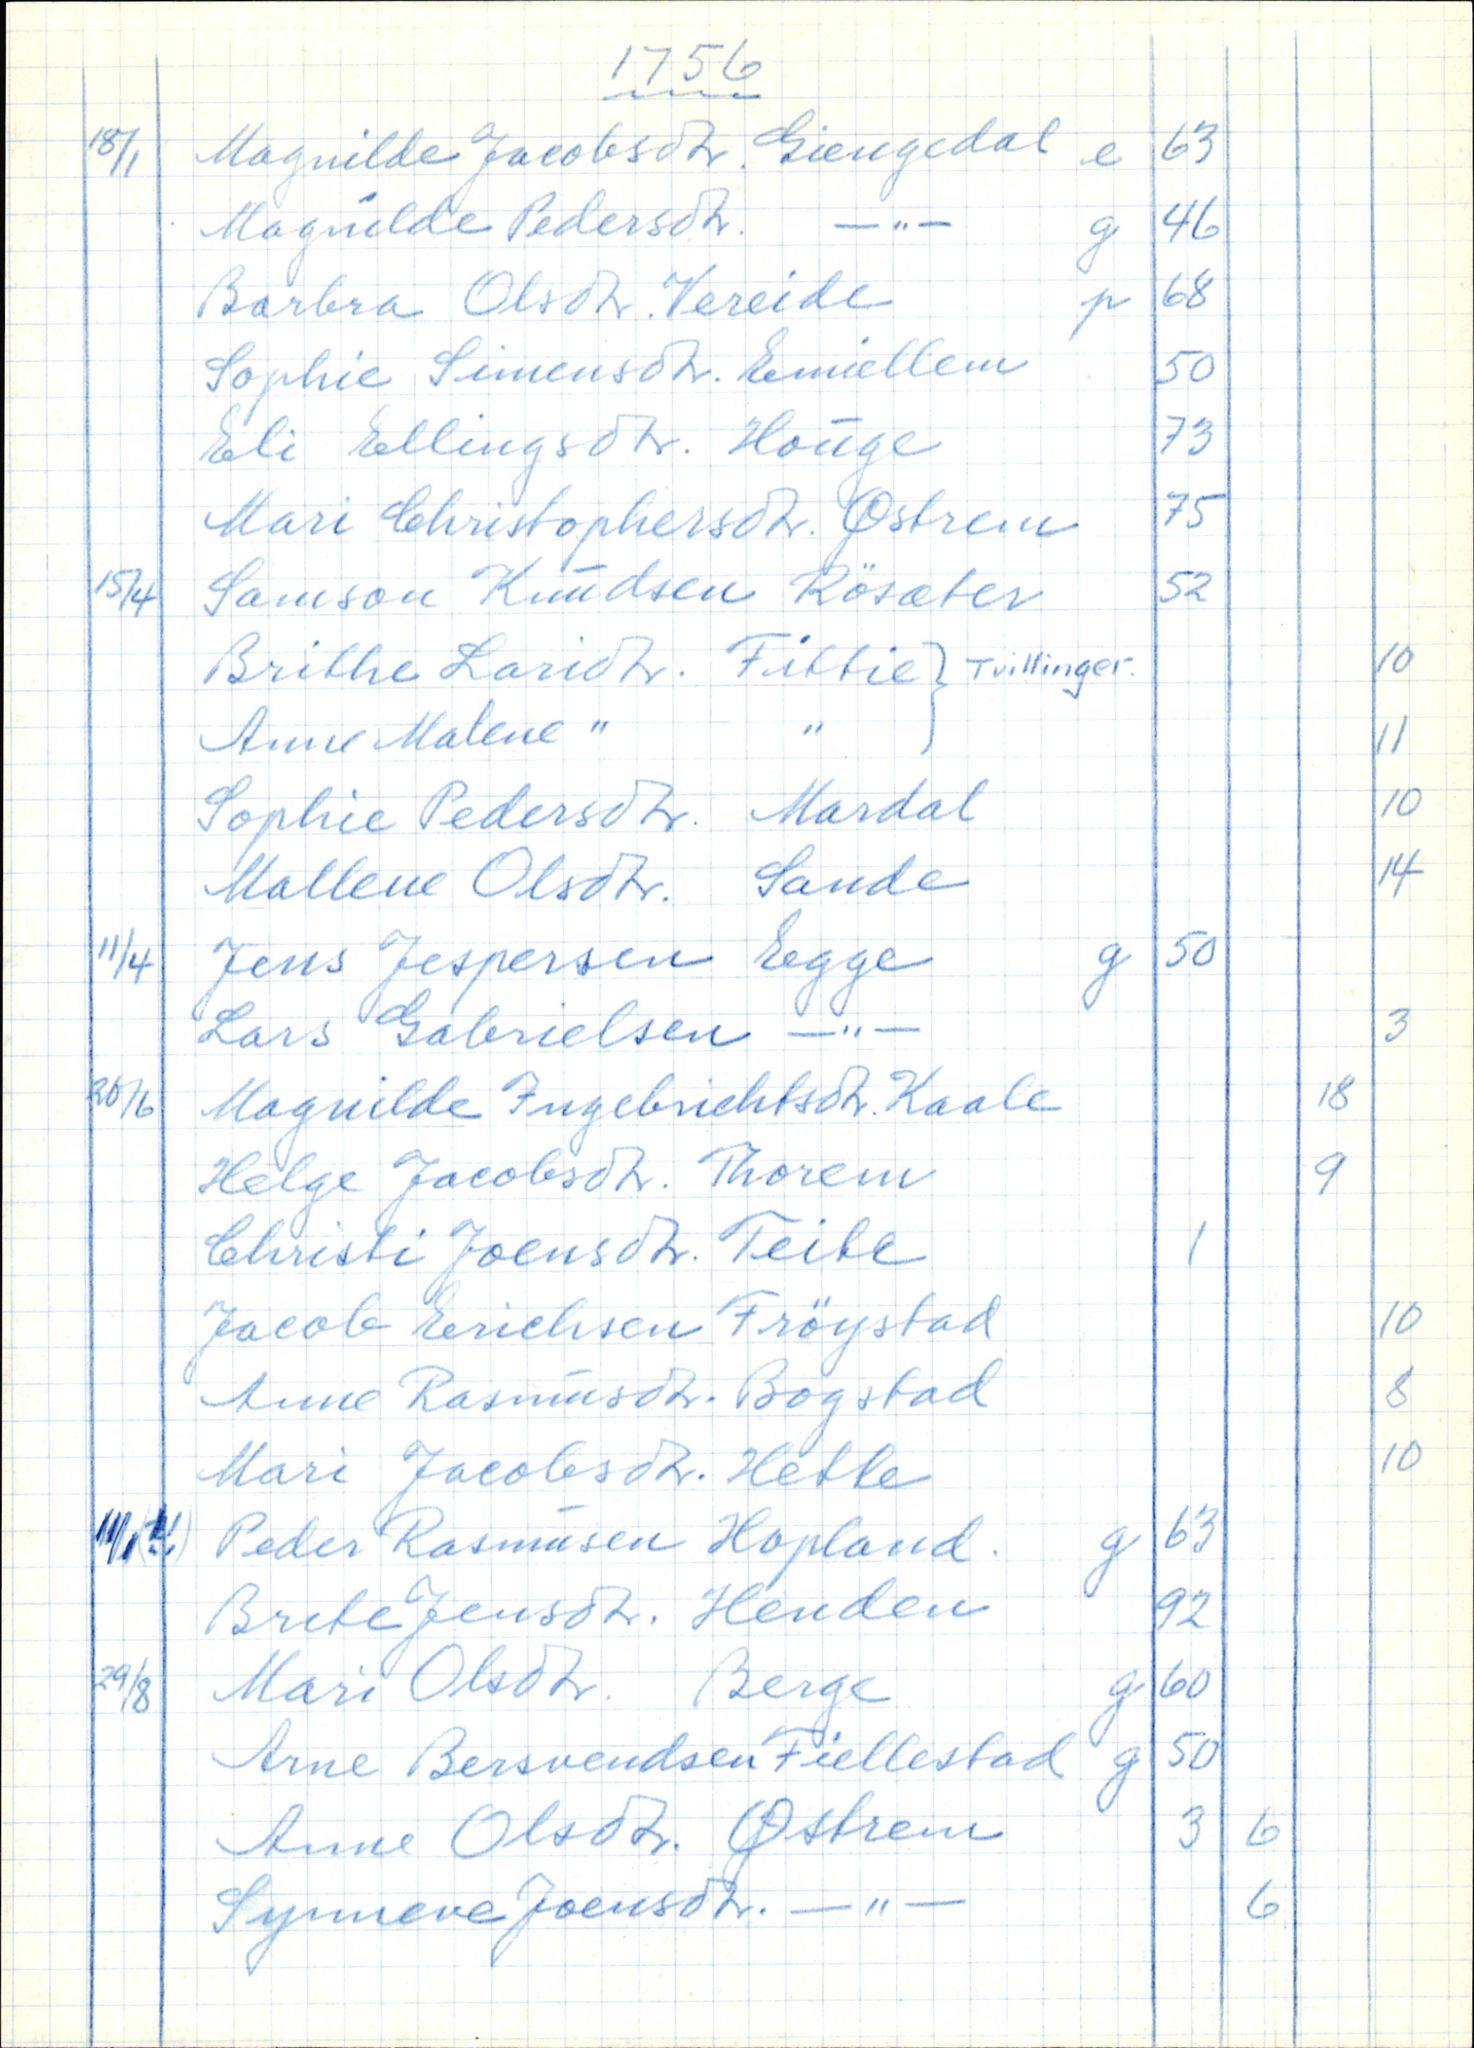 1756
18/1 Magnilde Jacobsdtr. Giengedal e 63
Magnilde Pedersdtr. —"— g 46
Barbra Olsdtr. Vereide p 68
Sophie Simensdtr. Emiellem 50
Eli Ellingsdtr. Houge 73
Mari Christophersdtr. Østrem 75
15/4 Samson Knudsen Rösæter 52
Brithe Larsdtr. Fittie } Tvillinger. 10
Anne Malene " " 11
Sophie Pedersdtr. Mardal 10
Mallene Olsdtr. Sande 14
11/4 Jens Jespersen Egge g 50
Lars Gabrielsen —"— 3
20/6 Magnilde Ingebrichtsdtr. Kaale 18
Helge Jacobsdtr. Thorem 9
Christi Joensdtr. Teite 1
Jacob Erichsen Fröystad 10
Anne Rasmusdtr. Bogstad 8
Mari Jacobsdtr. Hetle 10
Peder Rasmusen Hopland. g 63
Brete Jensdtr. Henden 92
29/8 Mari Olsdtr. Berge g 60
Arne Bersvendsen Fiellestad g 50
Anne Olsdtr. Østrem 3 6
Synneve Joensdtr. —"— 6